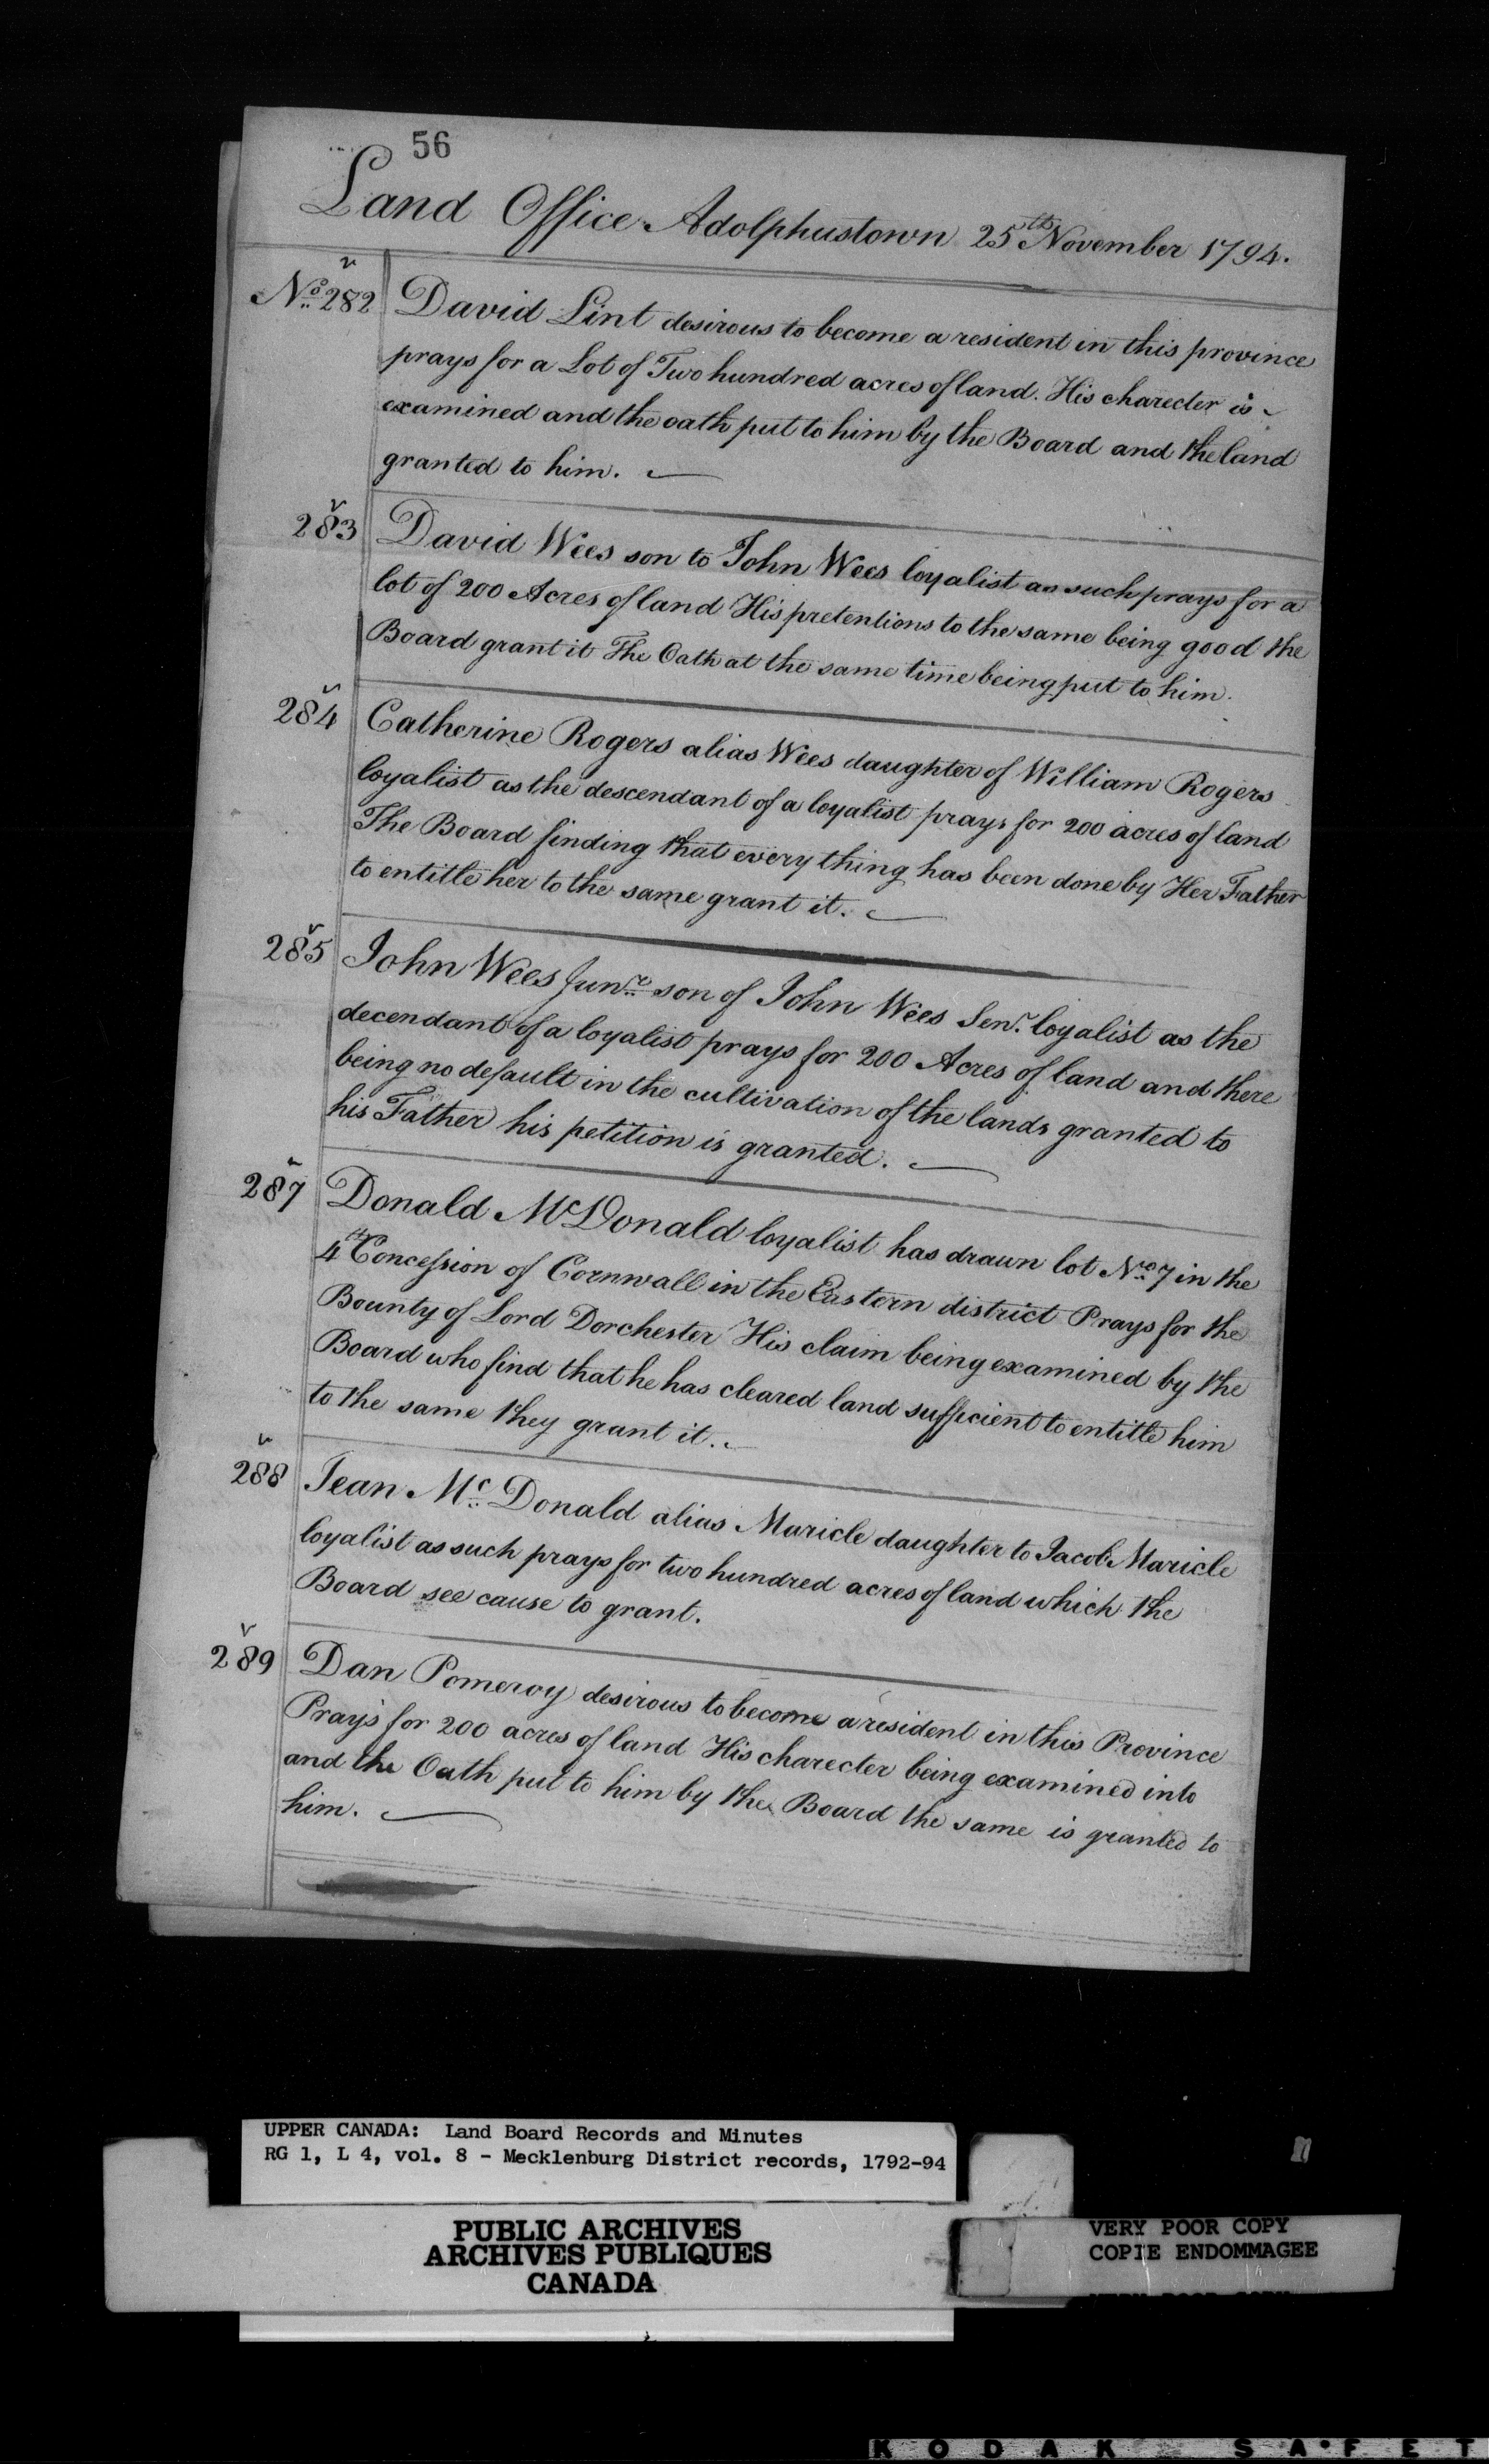 56
Land Office Adolphustown 25th November 1794.
No. 282 David Lint desirous to become a resident in this province
prays for a Lot of Two hundred acres of land. His charecter is
examined and the oath put to him by the Board and the land
granted to him.
283 David Wees son to John Wees loyalist as such prays for a
lot of 200 Acres of land His pretentions to the same being good the
Board grant it The Oath at the same time being put to him.
284 Catherine Rogers alias Wees daughter of William Rogers
loyalist as the descendant of a loyalist prays for 200 acres of land
The Board finding that every thing has been done by Her Father
to entitle her to the same grant it.
285 John Wees Junr. son of John Wees Senr. loyalist as the
decendant of a loyalist prays for 200 Acres of land and there
being no default in the cultivation of the lands granted to
his Father his petition is granted.
287 Donald McDonald loyalist has drawn lot No. 7 in the
4th Concession of Cornwall in the Eastern district Prays for the
Bounty of Lord Dorchester His claim being examined by the
Board who find that he has cleared land sufficient to entitle him
to the same they grant it.
288 Jean Mc Donald alias Maricle daughter to Jacob Maricle
loyalist as such prays for two hundred acres of land which the
Board see cause to grant.
289 Dan Pomeroy desirous to become a resident in this Province
Prays for 200 acres of land His charecter being examined into
and the Oath put to him by the Board the same is granted to
him.
UPPER CANADA: Land Board Records and Minutes
RG 1, L 4, vol. 8 - Mecklenburg District records, 1792-94
PUBLIC ARCHIVES
ARCHIVES PUBLIQUES
CANADA
VERY POOR COPY
COPIE ENDOMMAGEE
VERY POOR COPY
KODAK SAFET